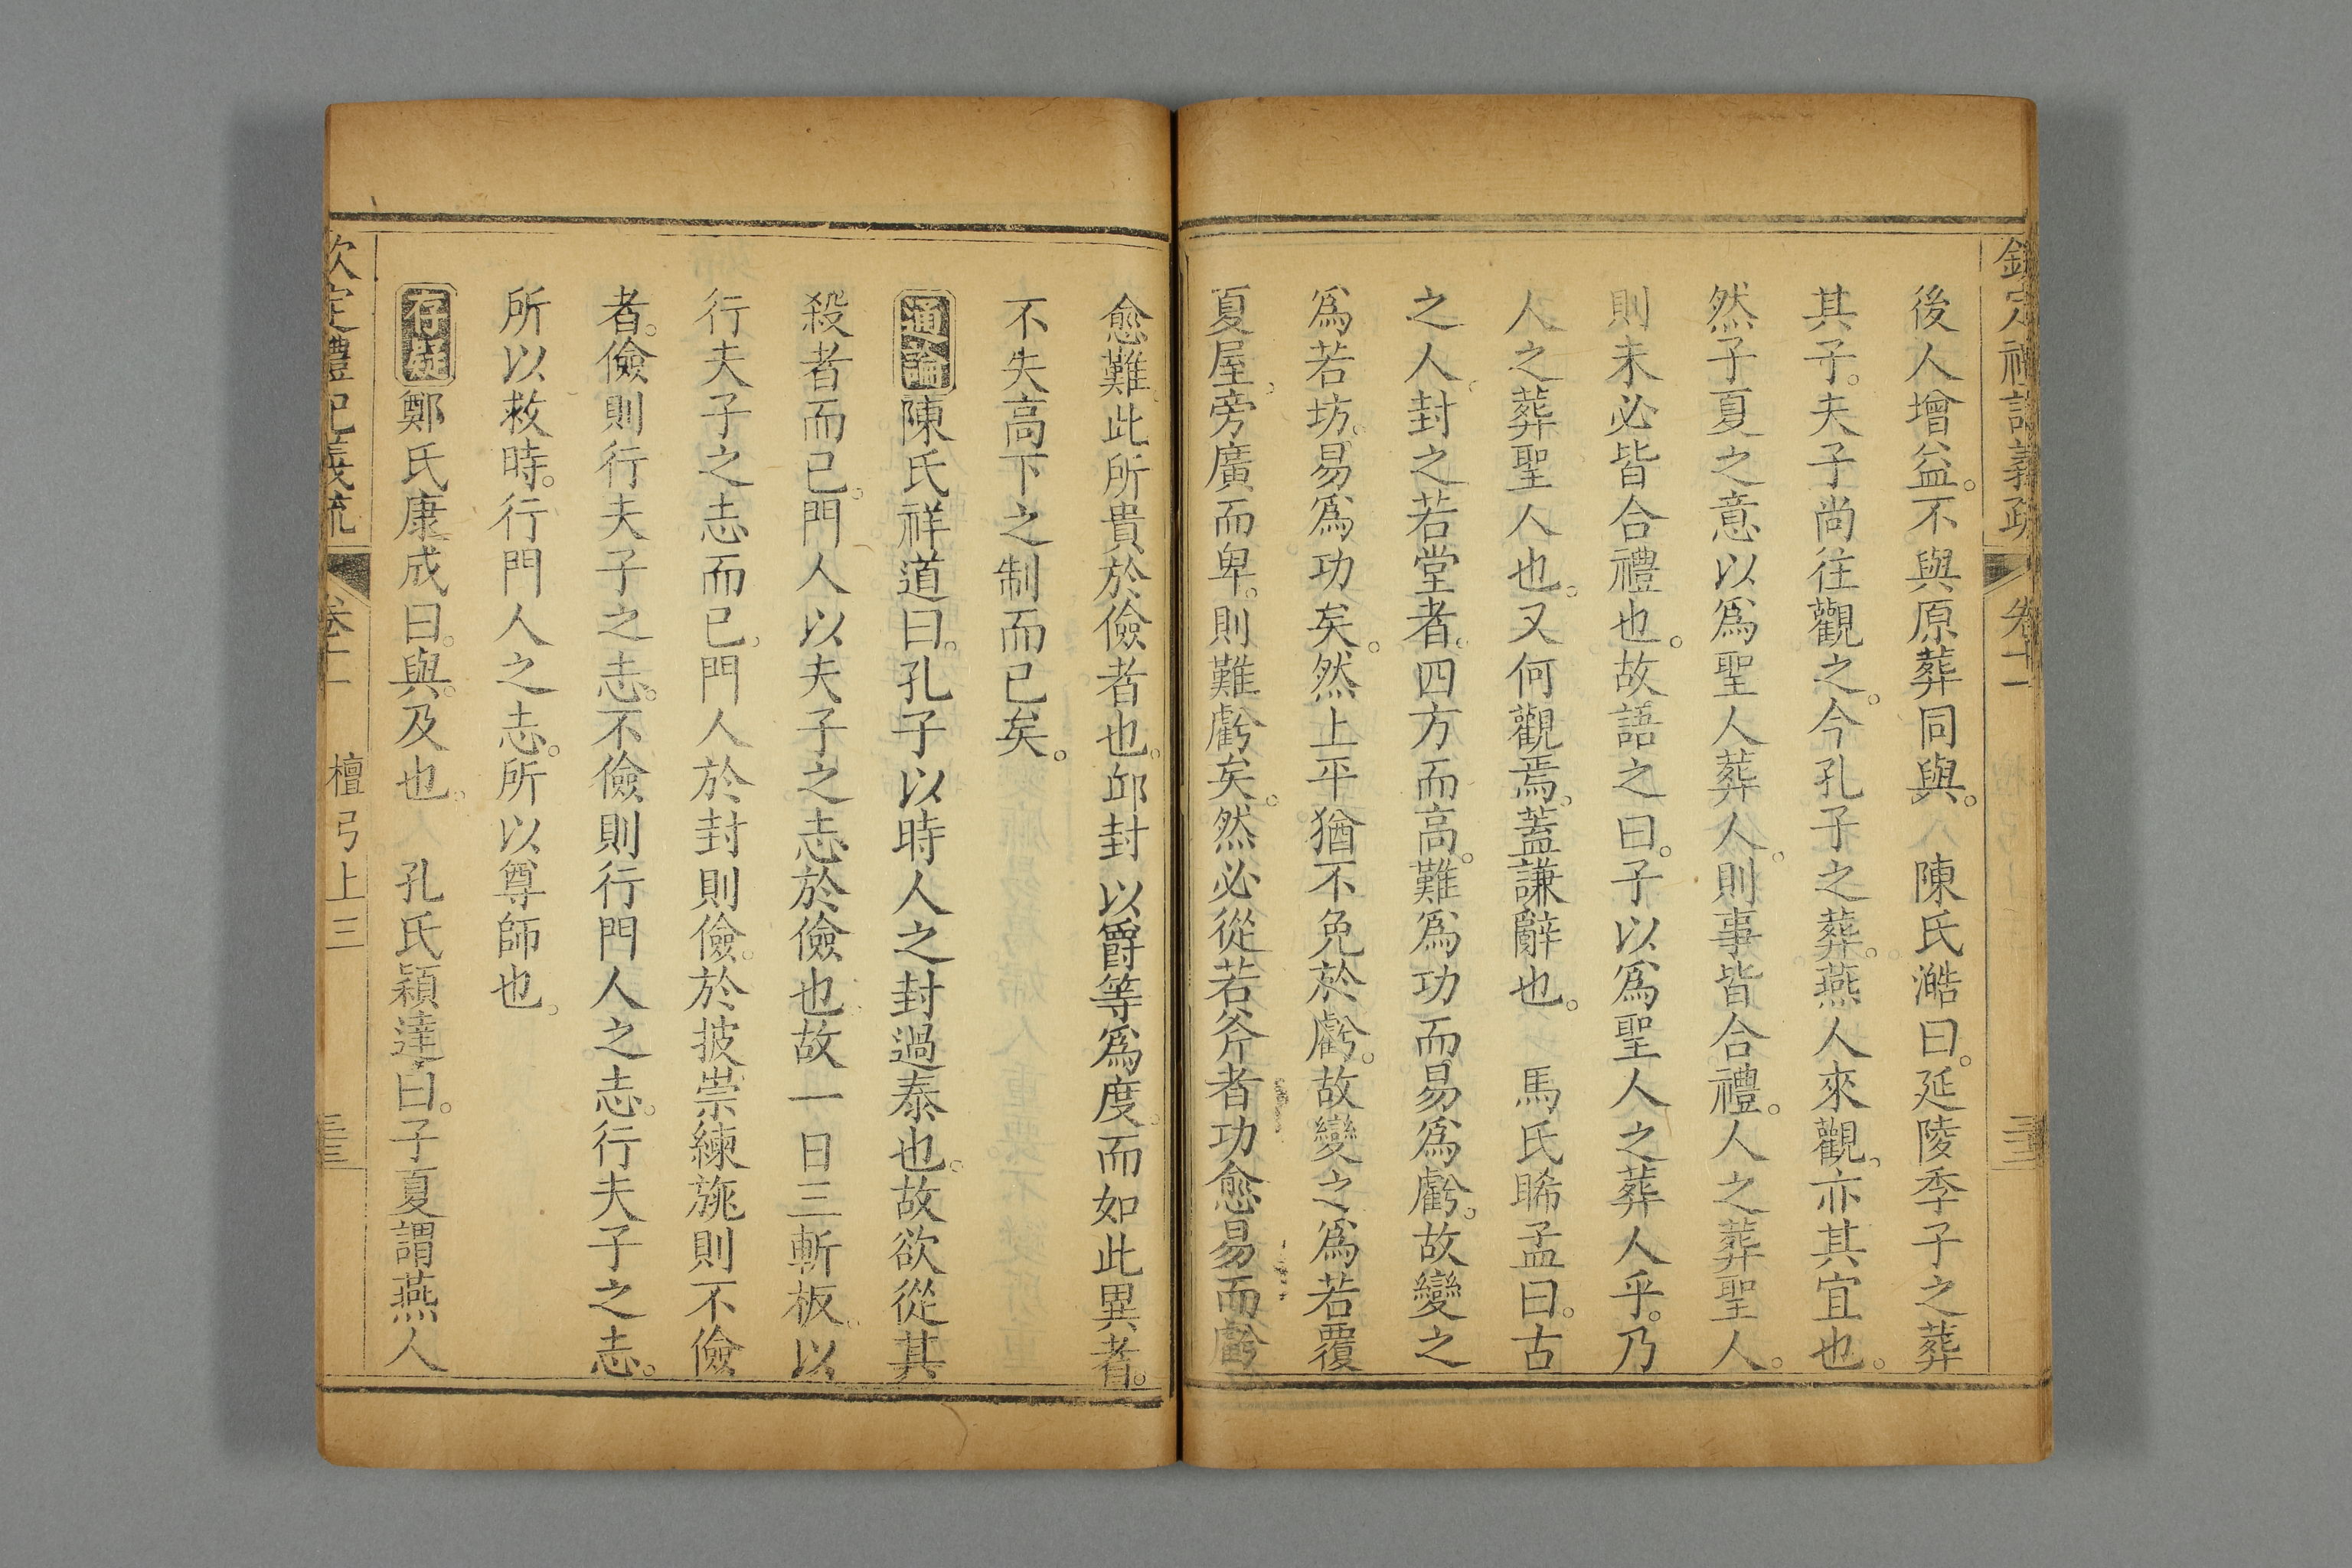 欽定禮記義疏 卷十一
後人增益。不與原葬同與。 陳氏澔曰。延陵季子之葬
其子。夫子尚往觀之。今孔子之葬。燕人來觀。亦其宜也。
然子夏之意以爲聖人葬人。則事皆合禮。人之葬聖人。
則未必皆合禮也。故語之曰。子以爲聖人之葬人乎。乃
人之葬聖人也。又何觀焉。蓋謙辭也。 馬氏睎孟曰。古
之人封之若堂者。四方而高。難爲功而易爲虧。故變之
爲若坊。易爲功矣。然上平猶不免於虧。故變之爲若覆
夏屋。旁廣而卑。則難虧矣。然必從若斧者功愈易而虧
愈難。此所貴於儉者也。邱封以爵等爲度。而如此異者。
不失高下之制而已矣。
通論陳氏祥道曰。孔子以時人之封過泰也。故欲從其
殺者而已。門人以夫子之志於儉也。故一日三斬板。以
行夫子之志而已。門人於封則儉。於披崇練旐則不儉
者。儉則行夫子之志。不儉則行門人之志。行夫子之志。
所以救時。行門人之志。所以尊師也。
存疑鄭氏康成曰。與。及也。 孔氏穎達曰。子夏謂燕人
欽定禮記義疏 卷十一 檀弓上三